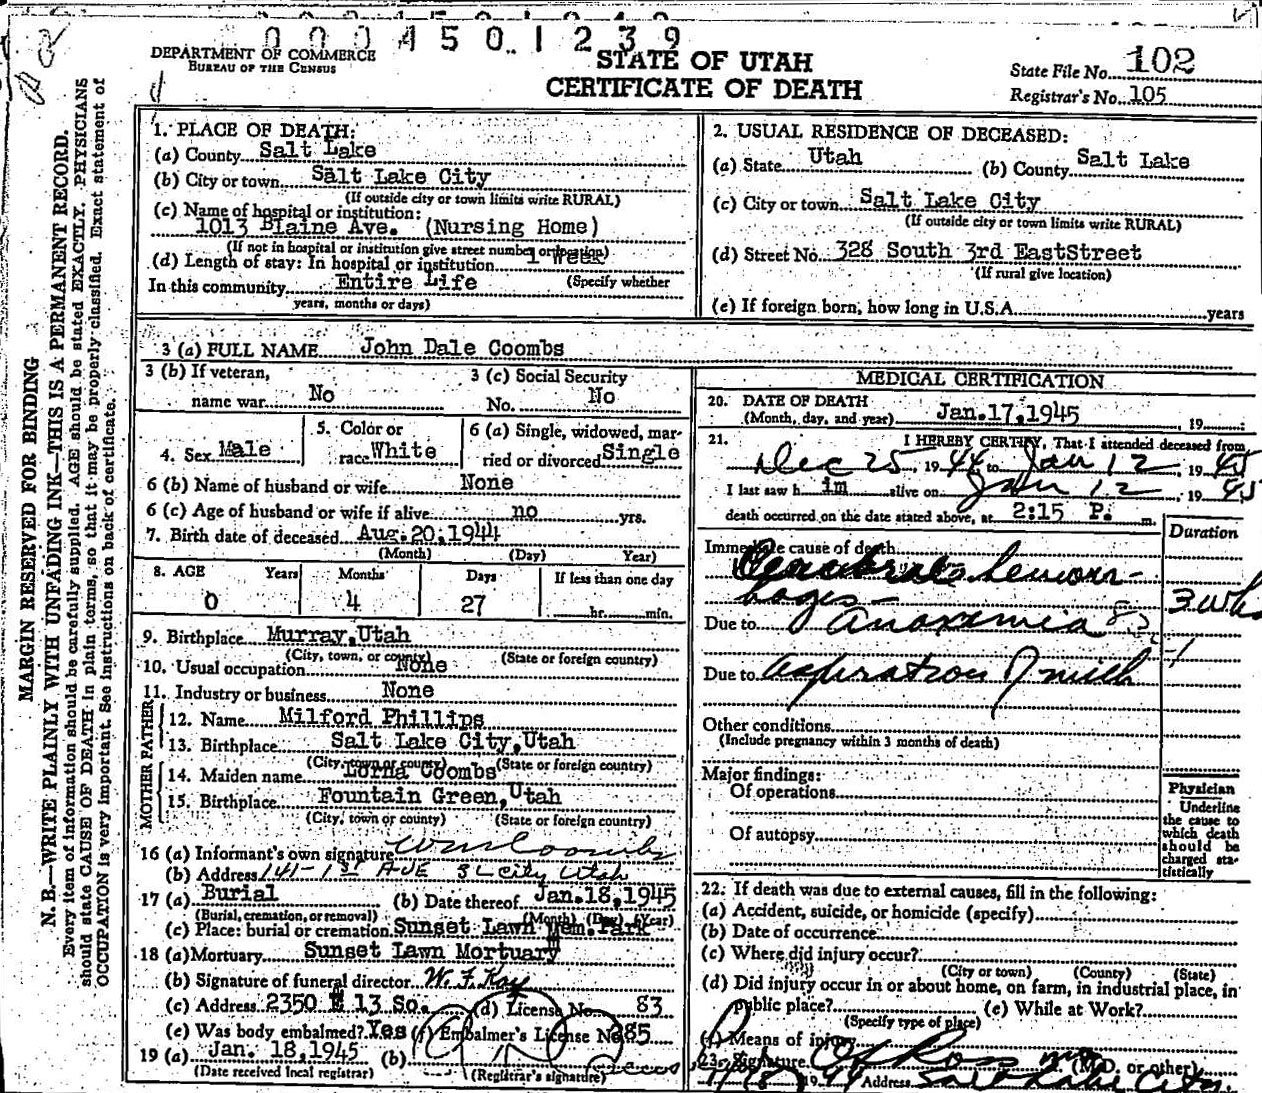 0 0 0 4 5 0 1 2 3 9
DEPARTMENT OF COMMERCE
BUREAU OF THE CENSUS
STATE OF UTAH
CERTIFICATE OF DEATH
State File No. 102
Registrar's No. 105
MARGIN RESERVED FOR BINDING
N. B.—WRITE PLAINLY WITH UNFADING INK—THIS IS A PERMANENT RECORD.
Every item of information should be carefully supplied. AGE should be stated EXACTLY. PHYSICIANS
should state CAUSE OF DEATH in plain terms, so that it may be properly classified. Exact statement of
OCCUPATION is very important. See instructions on back of certificate.
1. PLACE OF DEATH:
(a) County Salt Lake
(b) City or town Salt Lake City
(If outside city or town limits write RURAL)
(c) Name of hospital or institution:
1013 Blaine Ave. (Nursing Home)
(If not in hospital or institution give street number or location)
(d) Length of stay: In hospital or institution 1 week
In this community Entire Life (Specify whether
years, months or days)
2. USUAL RESIDENCE OF DECEASED:
(a) State Utah (b) County Salt Lake
(c) City or town Salt Lake City
(If outside city or town limits write RURAL)
(d) Street No. 328 South 3rd EastStreet
(If rural give location)
(e) If foreign born, how long in U.S.A. years
3 (a) FULL NAME John Dale Coombs
3 (b) If veteran, name war No
3 (c) Social Security No. No
4. Sex Male
5. Color or race White
6 (a) Single, widowed, married or divorced Single
6 (b) Name of husband or wife None
6 (c) Age of husband or wife if alive no yrs.
7. Birth date of deceased Aug.20,1944
(Month) (Day) Year)
8. AGE Years Months Days If less than one day
0 4 27 hr. min.
9. Birthplace Murray,Utah
(City, town, or county) (State or foreign country)
10. Usual occupation None
11. Industry or business None
FATHER
12. Name Milford Phillips
13. Birthplace Salt Lake City,Utah
(City, town or county) (State or foreign country)
MOTHER
14. Maiden name Lorna Coombs
15. Birthplace Fountain Green,Utah
(City, town or county) (State or foreign country)
16 (a) Informant's own signature Wm Coombs
(b) Address 141-1st AVE S L City Utah
17 (a) Burial (b) Date thereof Jan.18,1945
(Burial, cremation, or removal) (Month) (Day) (Year)
(c) Place: burial or cremation Sunset Lawn Mem. Park
18 (a) Mortuary Sunset Lawn Mortuary
(b) Signature of funeral director W. F. Kay
(c) Address 2350 E 13 So. (d) License No. 83
(e) Was body embalmed? Yes (f) Embalmer's License No. 285
19 (a) Jan. 18,1945 (b)
(Date received local registrar) (Registrar's signature)
MEDICAL CERTIFICATION
20. DATE OF DEATH
(Month, day, and year) Jan.17,1945, 19
21. I HEREBY CERTIFY, That I attended deceased from
Dec 25, 1944 to Jan 12, 1945
I last saw him alive on Jan 12, 1945
death occurred on the date stated above, at 2:15 P. m.
Duration
Immediate cause of death
Cerebral hemorrhages 3 wks
Due to Anoxemia
Due to aspiration of milk
Other conditions
(Include pregnancy within 3 months of death)
Major findings:
Of operations
Of autopsy
Physician
Underline
the cause to
which death
should be
charged sta-
tistically
22. If death was due to external causes, fill in the following:
(a) Accident, suicide, or homicide (specify)
(b) Date of occurrence
(c) Where did injury occur?
(City or town) (County) (State)
(d) Did injury occur in or about home, on farm, in industrial place, in
public place? (e) While at Work?
(Specify type of place)
(f) Means of injury
23. Signature Ross MD (M.D. or other)
1944 Address Salt Lake City.